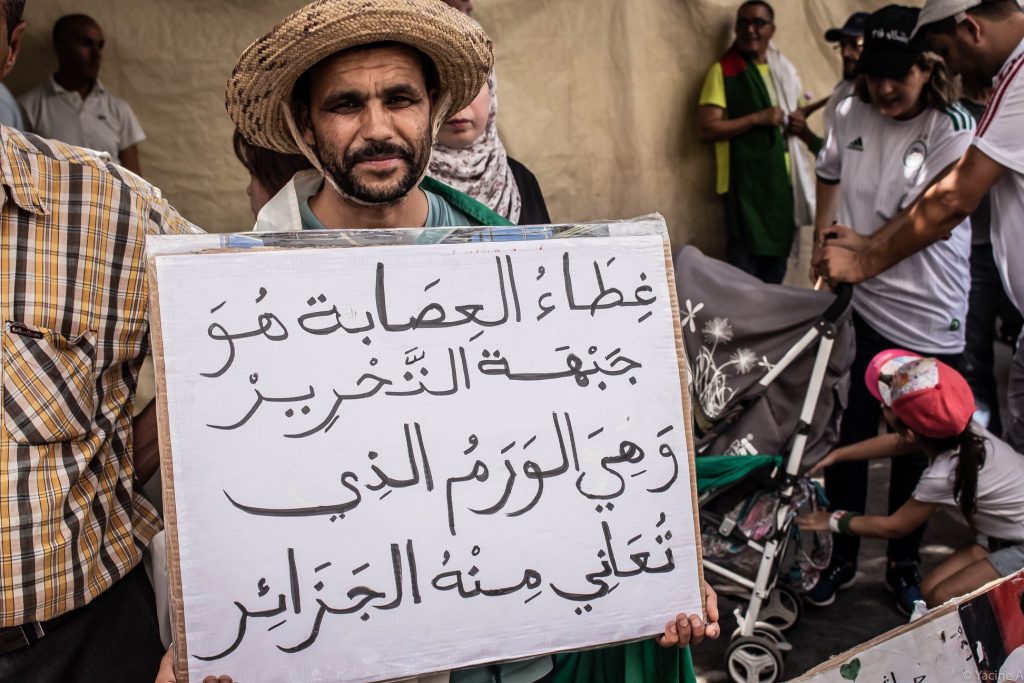 غِطَاءُ العِصَابة هُوَ
جَبْهَة التَّحْرِيرْ
وَهِيَ الوَرَمُ الذِي
تُعَانِي مِنْهُ الجَزَائِر
© Yacine A